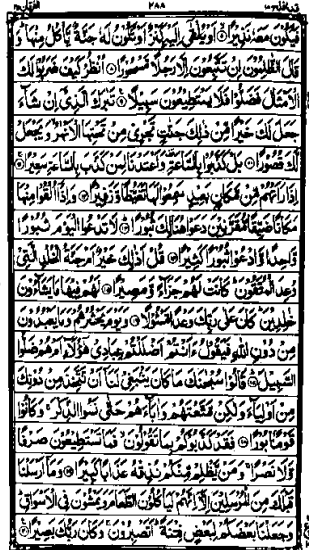 قد افلح ١٨ ٢٨٨ الفرقان ٢٥
فَيَكُوْنَ مَعَهٗ نَذِيْرًا ۙ اَوْ يُلْقٰۤى اِلَيْهِ كَنْزٌ اَوْ تَكُوْنُ لَهٗ جَنَّةٌ يَّاْكُلُ مِنْهَا ؕ وَ
قَالَ الظّٰلِمُوْنَ اِنْ تَتَّبِعُوْنَ اِلَّا رَجُلًا مَّسْحُوْرًا ۞ اُنْظُرْ كَيْفَ ضَرَبُوْا لَكَ
الْاَمْثَالَ فَضَلُّوْا فَلَا يَسْتَطِيْعُوْنَ سَبِيْلًا ۞ تَبٰرَكَ الَّذِيْۤ اِنْ شَآءَ
جَعَلَ لَكَ خَيْرًا مِّنْ ذٰلِكَ جَنّٰتٍ تَجْرِيْ مِنْ تَحْتِهَا الْاَنْهٰرُ ۙ وَيَجْعَلْ
لَّكَ قُصُوْرًا ۞ بَلْ كَذَّبُوْا بِالسَّاعَةِ ۫ وَاَعْتَدْنَا لِمَنْ كَذَّبَ بِالسَّاعَةِ سَعِيْرًا ۞
اِذَا رَاَتْهُمْ مِّنْ مَّكَانٍۭ بَعِيْدٍ سَمِعُوْا لَهَا تَغَيُّظًا وَّزَفِيْرًا ۞ وَاِذَاۤ اُلْقُوْا مِنْهَا
مَكَانًا ضَيِّقًا مُّقَرَّنِيْنَ دَعَوْا هُنَالِكَ ثُبُوْرًا ۞ لَا تَدْعُوا الْيَوْمَ ثُبُوْرًا
وَّاحِدًا وَّادْعُوْا ثُبُوْرًا كَثِيْرًا ۞ قُلْ اَذٰلِكَ خَيْرٌ اَمْ جَنَّةُ الْخُلْدِ الَّتِيْ
وُعِدَ الْمُتَّقُوْنَ ؕ كَانَتْ لَهُمْ جَزَآءً وَّمَصِيْرًا ۞ لَهُمْ فِيْهَا مَا يَشَآءُوْنَ
خٰلِدِيْنَ ؕ كَانَ عَلٰى رَبِّكَ وَعْدًا مَّسْـُٔوْلًا ۞ وَيَوْمَ يَحْشُرُهُمْ وَمَا يَعْبُدُوْنَ
مِنْ دُوْنِ اللّٰهِ فَيَقُوْلُ ءَاَنْتُمْ اَضْلَلْتُمْ عِبَادِيْ هٰۤؤُلَآءِ اَمْ هُمْ ضَلُّوا
السَّبِيْلَ ۞ قَالُوْا سُبْحٰنَكَ مَا كَانَ يَنْۢبَغِيْ لَنَاۤ اَنْ نَّتَّخِذَ مِنْ دُوْنِكَ
مِنْ اَوْلِيَآءَ وَلٰكِنْ مَّتَّعْتَهُمْ وَاٰبَآءَهُمْ حَتّٰى نَسُوا الذِّكْرَ ۚ وَكَانُوْا
قَوْمًۢا بُوْرًا ۞ فَقَدْ كَذَّبُوْكُمْ بِمَا تَقُوْلُوْنَ ۙ فَمَا تَسْتَطِيْعُوْنَ صَرْفًا
وَّلَا نَصْرًا ۚ وَمَنْ يَّظْلِمْ مِّنْكُمْ نُذِقْهُ عَذَابًا كَبِيْرًا ۞ وَمَاۤ اَرْسَلْنَا
قَبْلَكَ مِنَ الْمُرْسَلِيْنَ اِلَّاۤ اِنَّهُمْ لَيَاْكُلُوْنَ الطَّعَامَ وَيَمْشُوْنَ فِي الْاَسْوَاقِ ؕ
وَجَعَلْنَا بَعْضَكُمْ لِبَعْضٍ فِتْنَةً ؕ اَتَصْبِرُوْنَ ۚ وَكَانَ رَبُّكَ بَصِيْرًا ۞